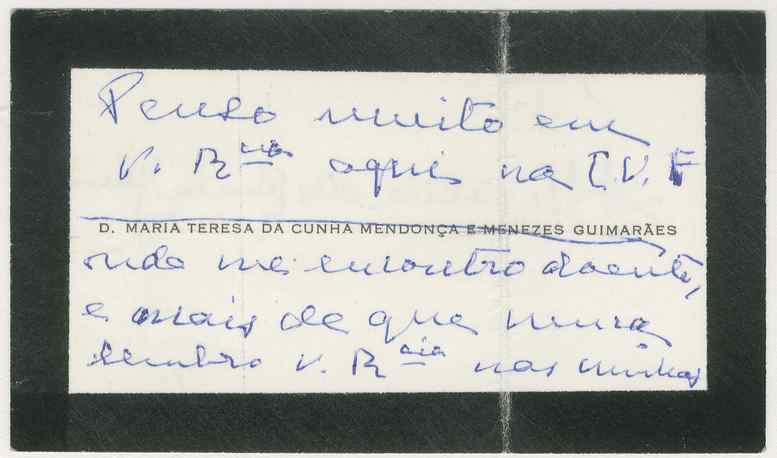 Penso muito em
V. Rcia aqui na C.V.F
D. MARIA TERESA DA CUNHA MENDONÇA E MENEZES GUIMARÃES
onde me encontro doente,
e mais de que nunca
lembro V. Rcia nas minhas